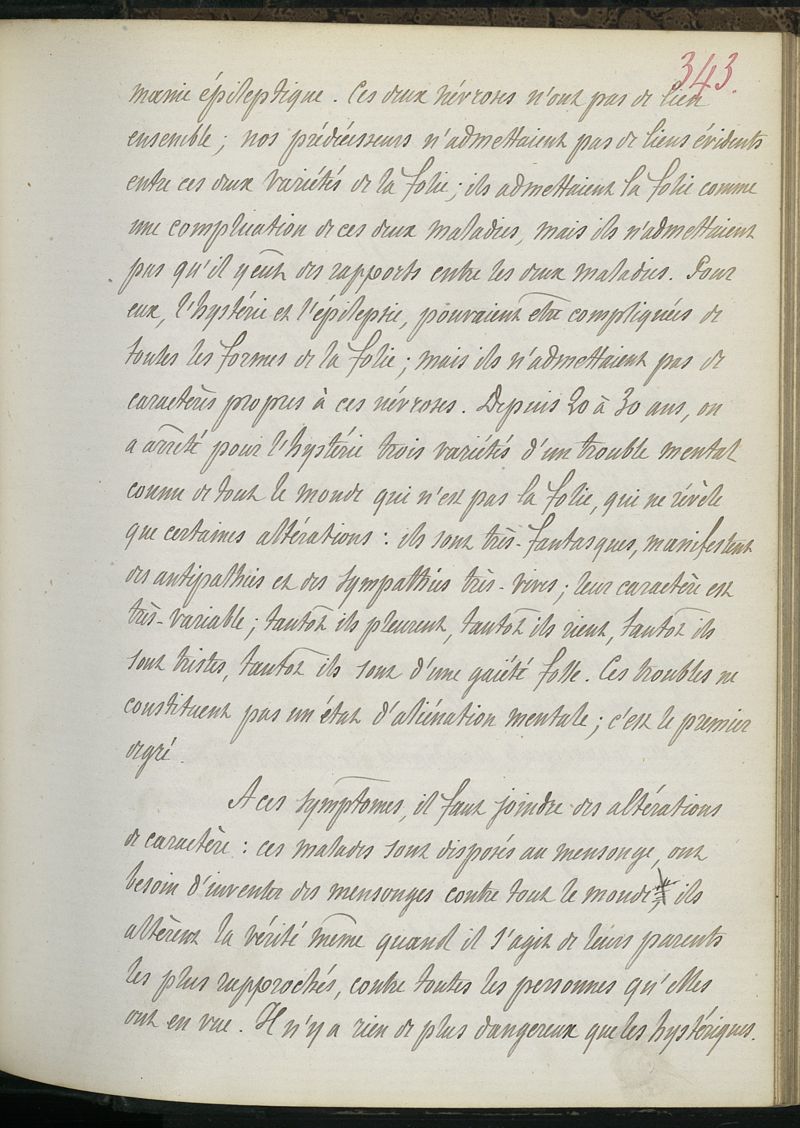 343.
manie épileptique. Ces deux névroses n'ont pas de lien
ensemble; nos prédécésseurs n'admettaient pas de liens évidents
entre ces deux variétés de la folie; ils admettaient la folie comme
une complication de ces deux maladies, mais ils n'admettaient
pas qu'il y eût des rapports entre les deux maladies. Pour
eux, l'hystérie et l'épilepsie, pouvaient être compliquées de
toutes les formes de la folie; mais ils n'admettaient pas de
caractères propres à ces névroses. Depuis 20 à 30 ans, on
a arrêté pour l'hystérie trois variétés d'un trouble mental
connu de tout le monde qui n'est pas la folie, qui ne révèle
que certaines altérations: ils sont très-fantasques, manifestent
des antipathies et des sympathies très-vives; leur caractère est
très-variable; tantôt ils pleurent, tantôt ils rient, tantôt ils
sont tristes, tantôt ils sont d'une gaiété folle. Ces troubles ne
constituent pas un état d'aliénation mentale; c'est le premier
degré.
A ces symptômes, il faut joindre des altérations
de caractère: ces malades sont disposés au mensonge, ont
besoin d'inventer des mensonges contre tout le monde; ils
altèrent la vérité même quand il s'agit de leurs parents
les plus rapprochés, contre toutes les personnes qu'elles
ont en vue. Il n'y a rien de plus dangereux que les hystériques.